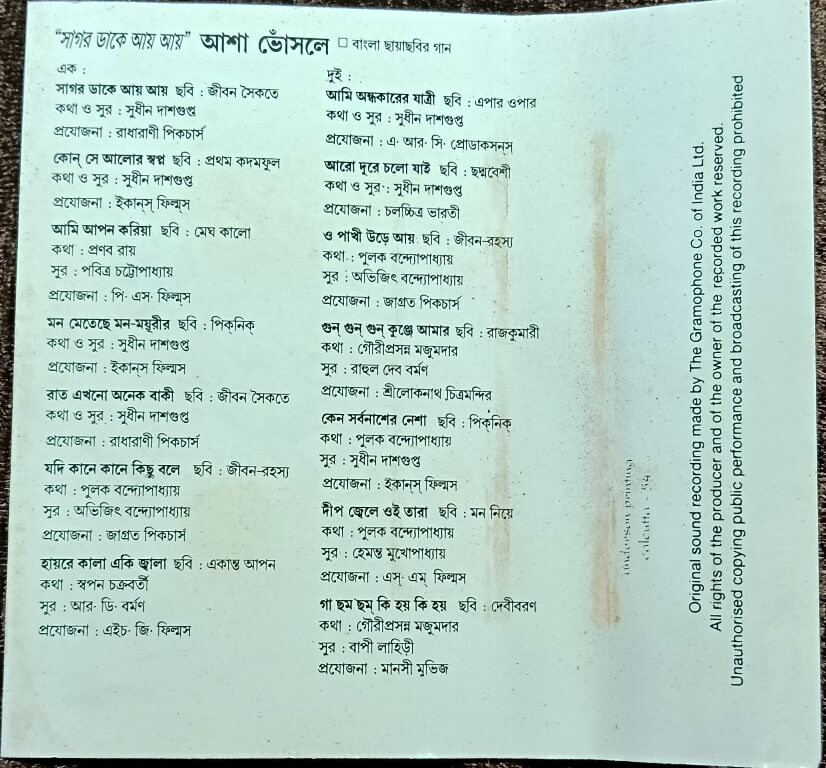 "সাগর ডাকে আয় আয়" আশা ভোঁসলে □ বাংলা ছায়াছবির গান
এক :
সাগর ডাকে আয় আয় ছবি : জীবন সৈকতে
কথা ও সুর : সুধীন দাশগুপ্ত
প্রযোজনা : রাধারাণী পিকচার্স
কোন্ সে আলোর স্বপ্ন ছবি : প্রথম কদমফুল
কথা ও সুর : সুধীন দাশগুপ্ত
প্রযোজনা : ইকানস্ ফিল্মস
আমি আপন করিয়া ছবি : মেঘ কালো
কথা : প্রণব রায়
সুর : পবিত্র চট্টোপাধ্যায়
প্রযোজনা : পি· এস· ফিল্মস
মন মেতেছে মন-ময়ূরীর ছবি : পিক্‌নিক্
কথা ও সুর : সুধীন দাশগুপ্ত
প্রযোজনা : ইকানস ফিল্মস
রাত এখনো অনেক বাকী ছবি : জীবন সৈকতে
কথা ও সুর : সুধীন দাশগুপ্ত
প্রযোজনা : রাধারাণী পিকচার্স
যদি কানে কানে কিছু বলে ছবি : জীবন-রহস্য
কথা : পুলক বন্দ্যোপাধ্যায়
সুর : অভিজিৎ বন্দ্যোপাধ্যায়
প্রযোজনা : জাগ্রত পিকচার্স
হায়রে কালা একি জ্বালা ছবি : একান্ত আপন
কথা : স্বপন চক্রবর্তী
সুর : আর· ডি· বর্মণ
প্রযোজনা : এইচ· জি· ফিল্মস
দুই :
আমি অন্ধকারের যাত্রী ছবি : এপার ওপার
কথা ও সুর : সুধীন দাশগুপ্ত
প্রযোজনা : এ· আর· সি· প্রোডাকসনস্
আরো দূরে চলো যাই ছবি : ছদ্মবেশী
কথা ও সুর : সুধীন দাশগুপ্ত
প্রযোজনা : চলচ্চিত্র ভারতী
ও পাখী উড়ে আয় ছবি : জীবন-রহস্য
কথা : পুলক বন্দ্যোপাধ্যায়
সুর : অভিজিৎ বন্দ্যোপাধ্যায়
প্রযোজনা : জাগ্রত পিকচার্স
গুন্ গুন্ গুন্ কুঞ্জে আমার ছবি : রাজকুমারী
কথা : গৌরীপ্রসন্ন মজুমদার
সুর : রাহুল দেব বর্মণ
প্রযোজনা : শ্রীলোকনাথ চিত্রমন্দির
কেন সর্বনাশের নেশা ছবি : পিক্‌নিক্
কথা : পুলক বন্দ্যোপাধ্যায়
সুর : সুধীন দাশগুপ্ত
প্রযোজনা : ইকানস্ ফিল্মস
দীপ জ্বেলে ওই তারা ছবি : মন নিয়ে
কথা : পুলক বন্দ্যোপাধ্যায়
সুর : হেমন্ত মুখোপাধ্যায়
প্রযোজনা : এস্· এম্ ফিল্মস
গা ছম্ ছম্ কি হয় কি হয় ছবি : দেবীবরণ
কথা : গৌরীপ্রসন্ন মজুমদার
সুর : বাপী লাহিড়ী
প্রযোজনা : মানসী মুভিজ
anderson printing
calcutta - 54
Original sound recording made by The Gramophone Co. of India Ltd.
All rights of the producer and of the owner of the recorded work reserved.
Unauthorised copying public performance and broadcasting of this recording prohibited